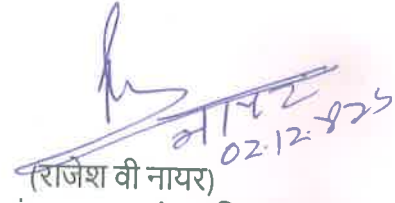 नायर
02.12.825
(राजेश वी नायर)